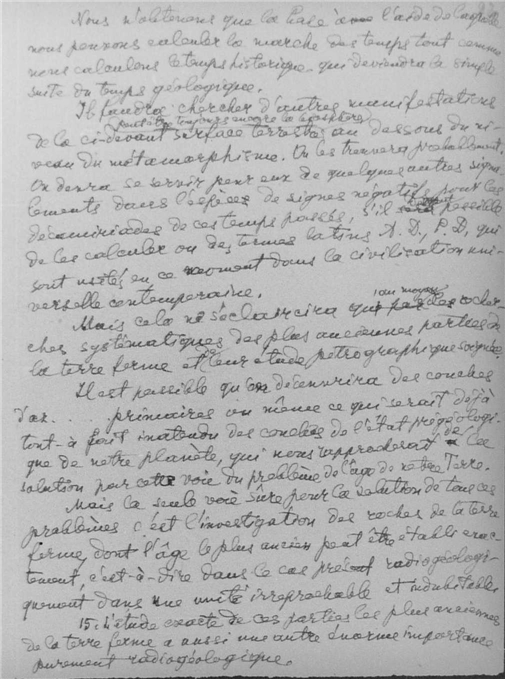 Nous n'obtenons que la base à l'aide de laquelle
nous pouvons calculer la marche des temps tout comme
nous calculons le temps historique qui deviendra la simple
suite du temps géologique.
Il faudra chercher d'autres manifestations
peut-être toujours encore la biosphère
de la ci-devant surface terrestre au dessous du ni-
veau du métamorphisme. On les trouvera probablement.
On devra se servir pour eux de quelques autres signa-
lements dans l'espèce de signes négatifs pour les
décamiriades de ces temps passés, s'il possible
de les calculer ou des termes latins A.D., P.D, qui
sont usités en ce moment dans la civilisation uni-
verselle contemporaine.
Mais cela ne s'éclaircira qu'au moyen des recher-
ches systématiques des plus anciennes parties de
la terre ferme et leur étude pétrographique soignée.
Il est possible qu'on découvrira des couches
primaires ou même ce qui serait déjà
tout-à-fait inatendu des couches de l'état prégéologi-
que de notre planète, qui nous approcherait de la
solution par cette voie du problème de l'âge de notre Terre.
Mais la seule voie sûre pour la solution de tous ces
problèmes c'est l'investigation des roches de la terre
ferme, dont l'âge le plus ancien peut être établi exac-
tement, c'est-à-dire dans le cas présent radiogéologi-
quement dans une unité irréprochable et indubitable
15. L'étude exacte de ces parties les plus anciennes
de la terre ferme a aussi une autre énorme importance
purement radiogéologique.